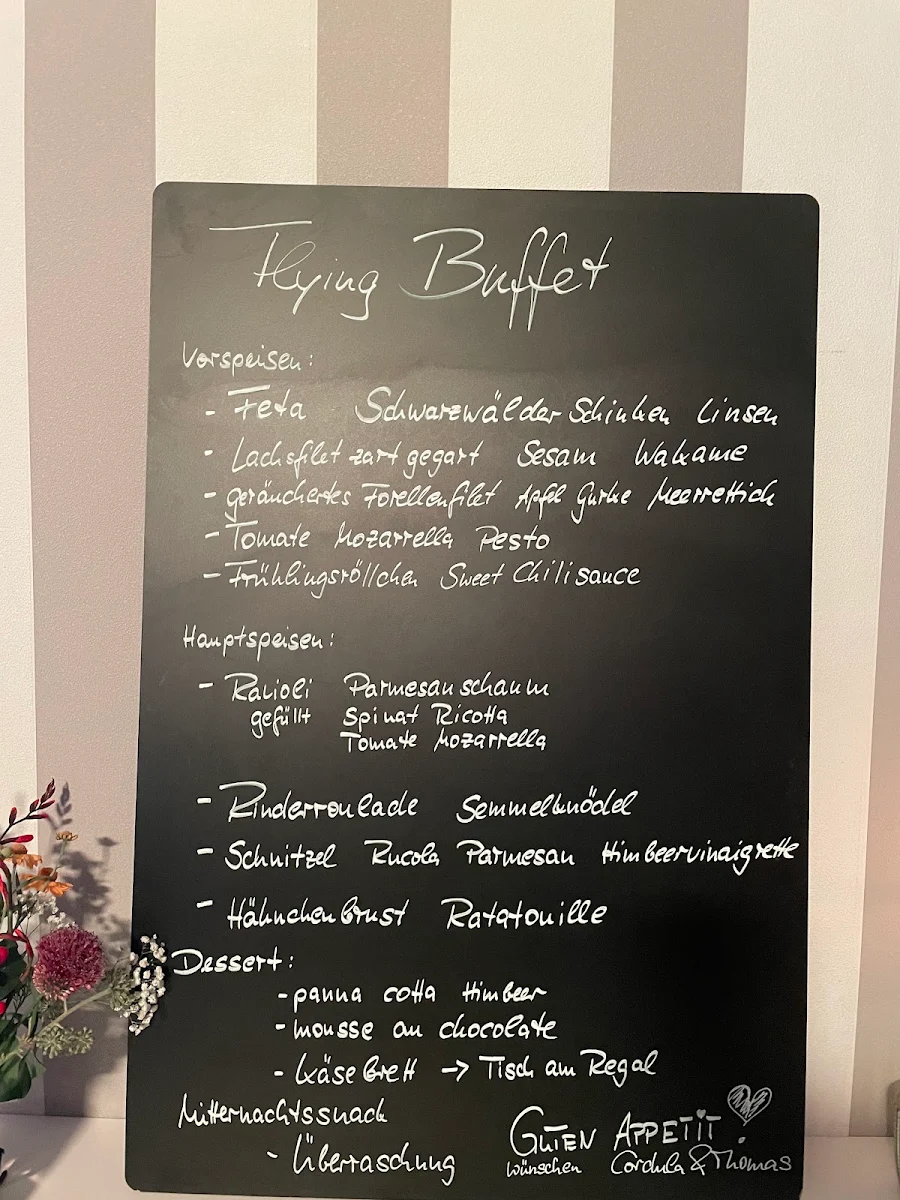 Flying Buffet
Vorspeisen:
- Feta Schwarzwälder Schinken Linsen
- Lachsfilet zart gegart Sesam Wakame
- geräuchertes Forellenfilet Apfel Gurke Meerrettich
- Tomate Mozarrella Pesto
- Frühlingsröllchen Sweet Chilisauce
Hauptspeisen:
- Ravioli Parmesanschaum
gefüllt Spinat Ricotta
Tomate Mozarrella
- Rinderroulade Semmelknödel
- Schnitzel Rucola Parmesan Himbeervinaigrette
- Hähnchenbrust Ratatouille
Dessert:
- panna cotta Himbeer
- mousse au chocolate
- Käsebrett → Tisch am Regal
Mitternachtssnack
- Überraschung
GUTEN APPETIT!
wünschen Cordula & Thomas